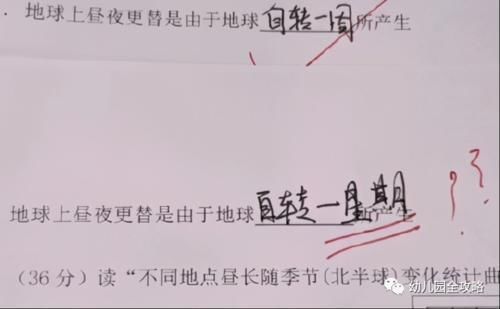 . 地球上昼夜更替是由于地球自转一周所产生
地球上昼夜更替是由于地球自转一星期所产生
??
(36 分) 读“不同地点昼长随季节(北半球)变化统计曲
幼儿园全攻略